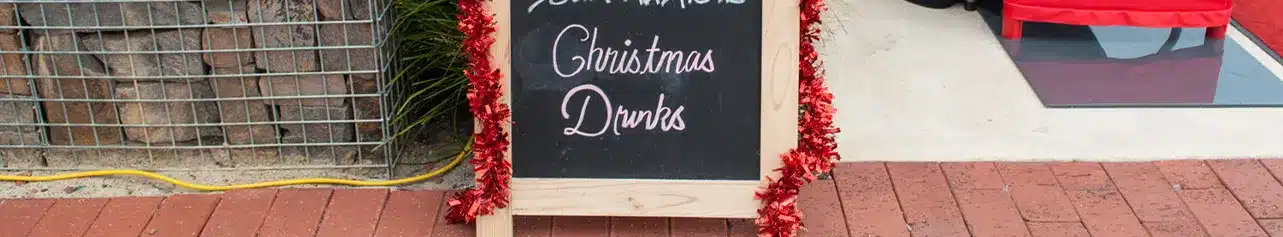 Christmas
Drunks